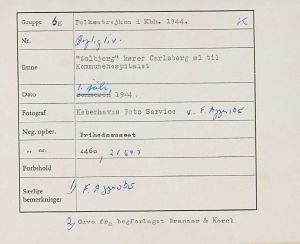 Gruppe 6g Folkestrejken i Kbh. 1944. K
Nr. Dagligliv.
Emne "Solbjerg" kører Carlsberg øl til Kommunehospitalet
Dato 1. juli, Sommeren 1944.
Fotograf Københavns Foto Service v. F. Aggersbo
Neg. opbev. Frihedsmuseet
„ nr. 4460, 21697
Forbehold
Særlige bemerkninger 1) F. Aggersbo
2) Gave fra bogforlaget Branner & Korch